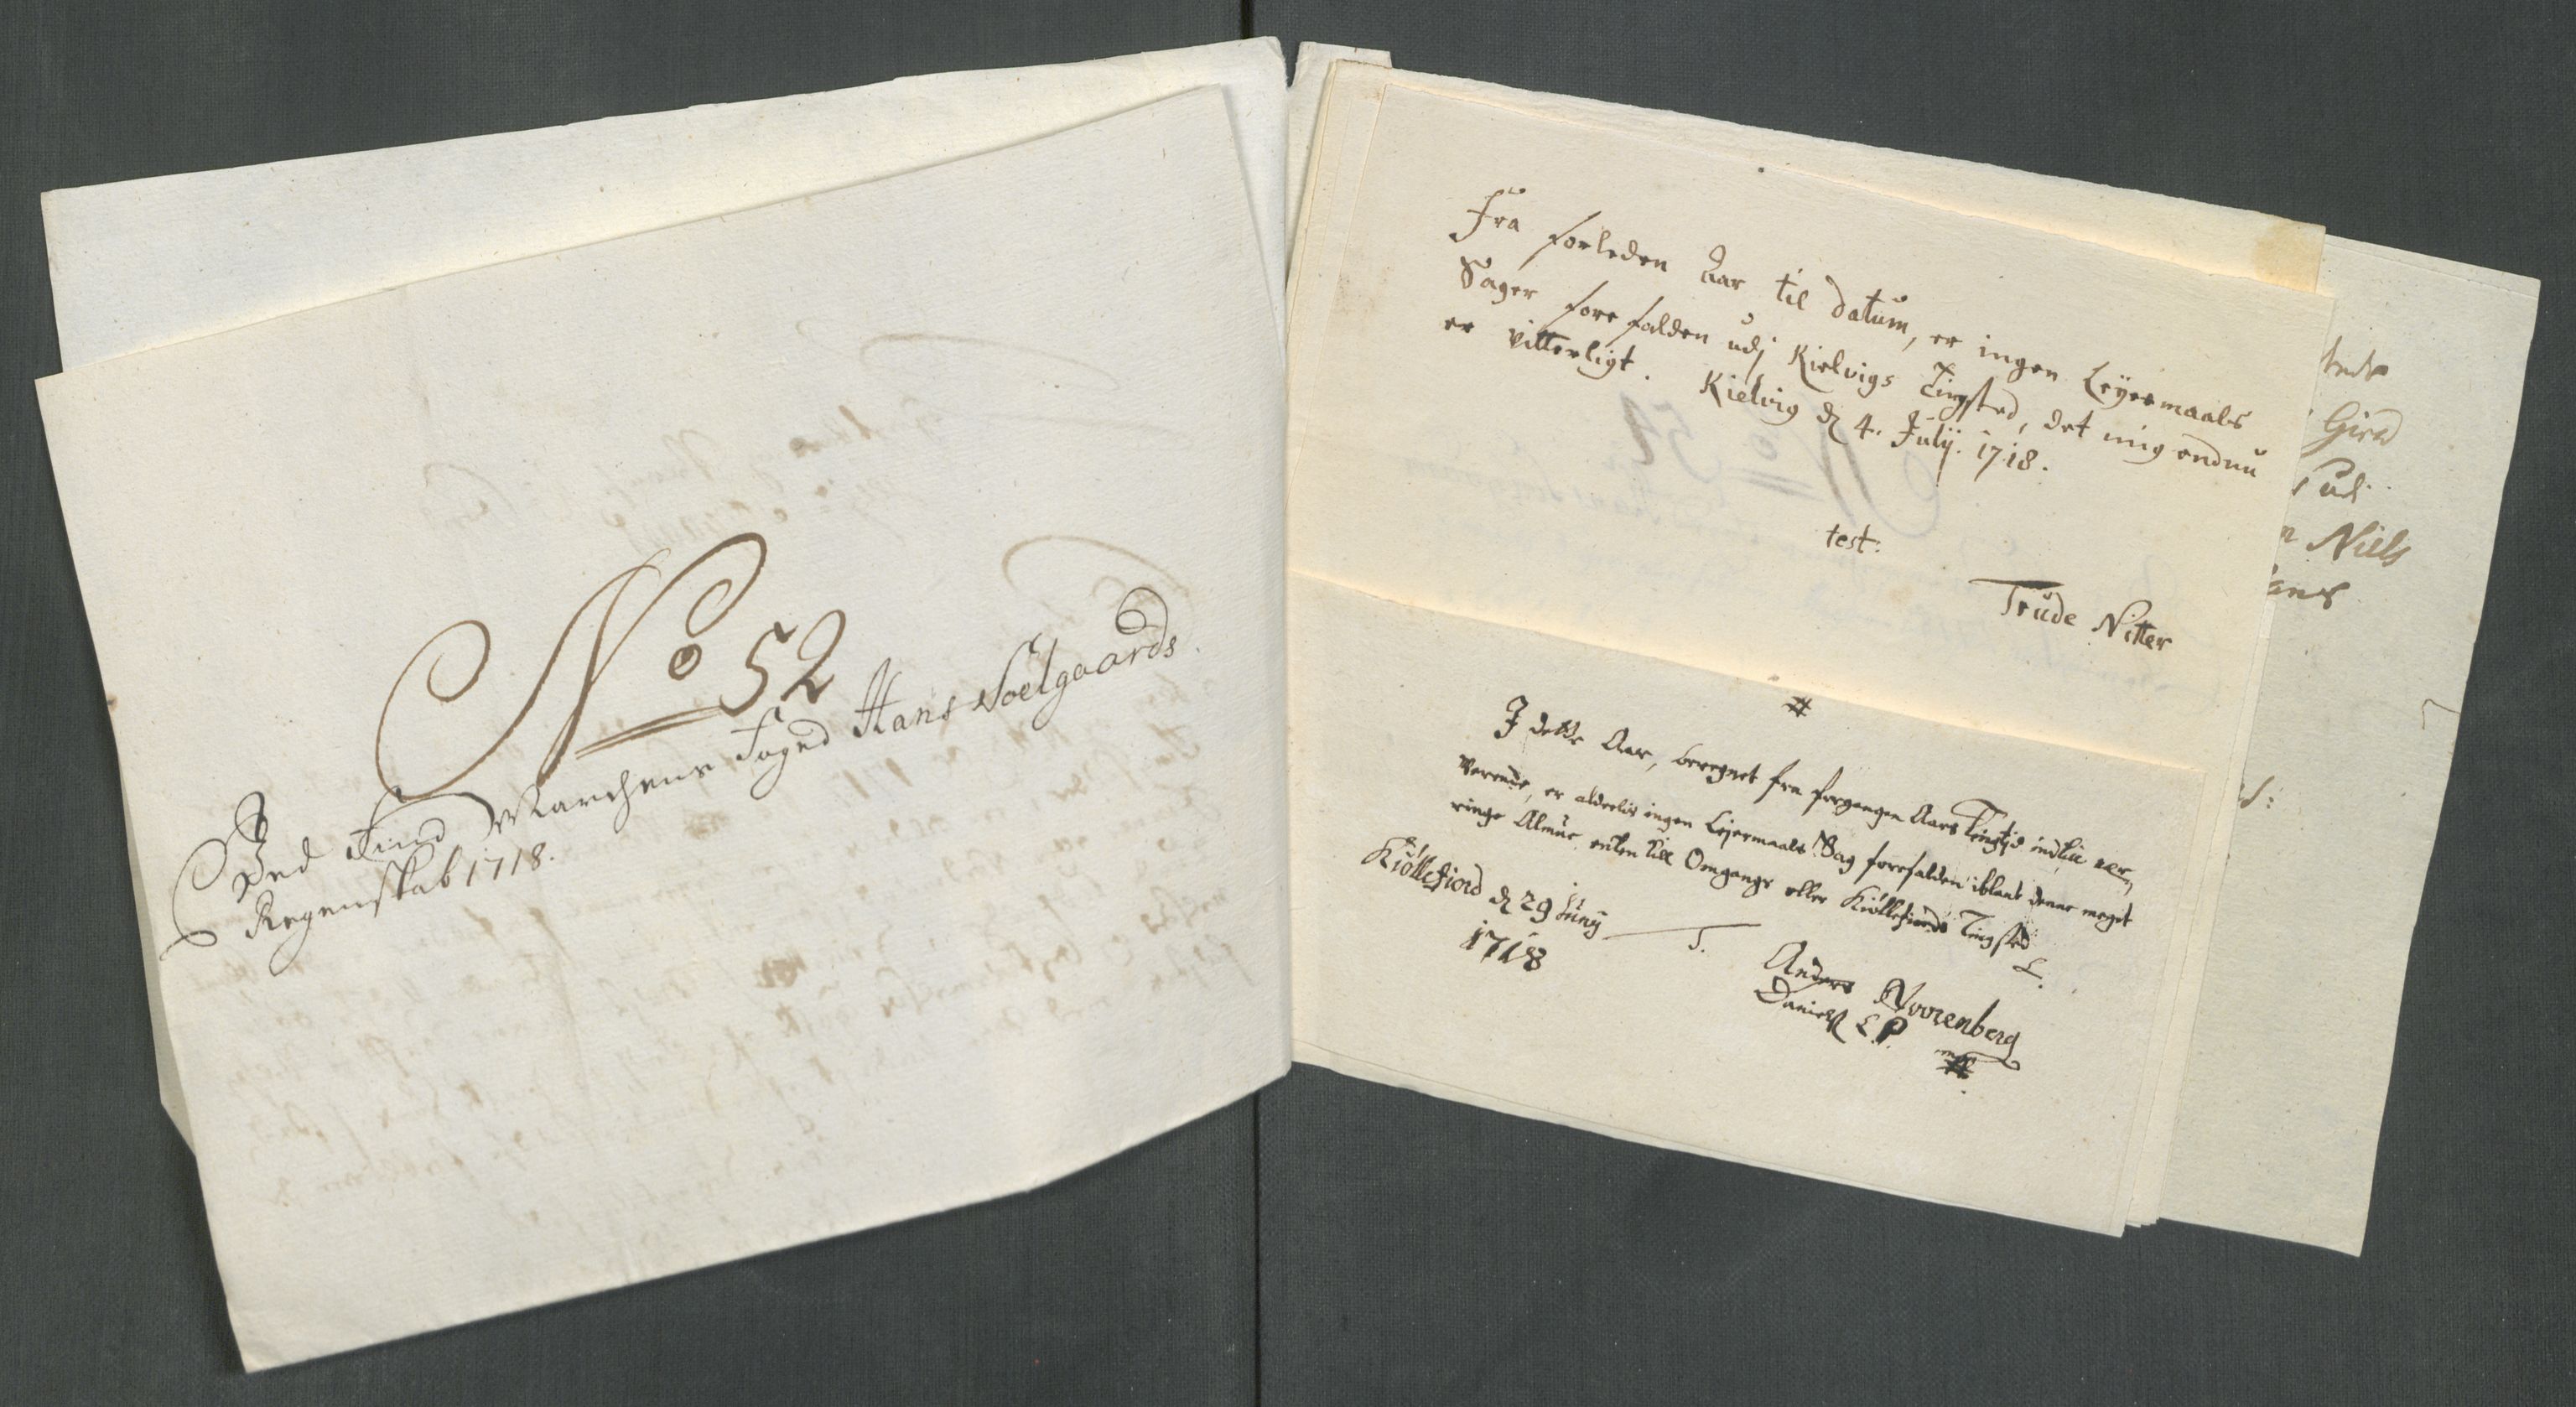 No 52
Ved Find Marchens Foged Hans Soelgaards
Regenskab 1718.
Fra forleden Aar til datum, er ingen Leÿermaals
Sager forefalden udj Kielvigs Tingsted, det mig endnu
er vitterligt. Kielvig d 4. Julij. 1718.
test:
Trude Nitter
I dette Aar, beregnet fra forgangen Aars Tingtjd indtil nær,
værende, er aldeelis ingen Lejermaals Sag forefalden iblant denne meget
ringe Almue, enten till Omgangs eller Kiöllefiords Tingsted
Kiöllefiord d 29 Junij
1718
Anders Noorenberg
Daniels
Giert
Niels